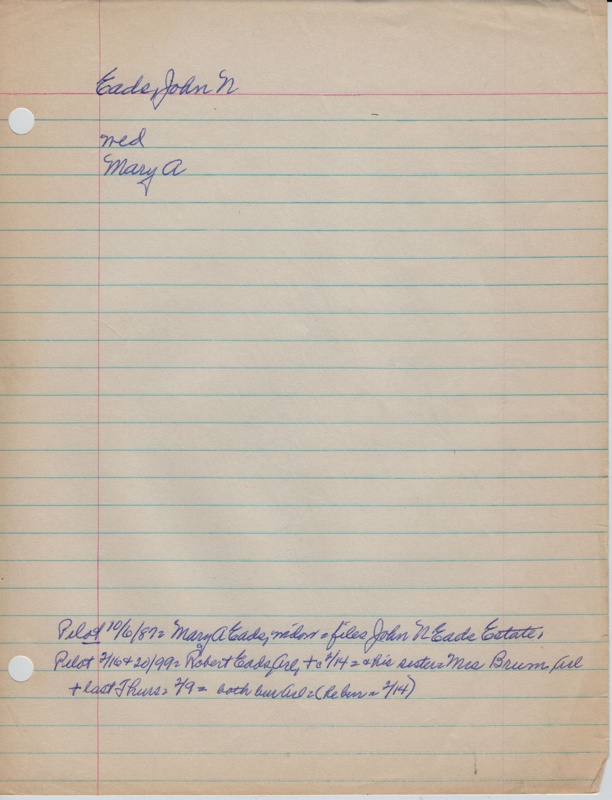 Eads, John N
wed
Mary A
Pilot 10/6/87 = Mary A Eads, widow = files John N Eads Estate,
Pilot 2/16 + 20/99 = Robert Eads, Arl, + c 2/14 = + his sister = Mrs Brum, Arl
+ last Thurs = 2/9 = both bur Arl = (he bur = 2/14)